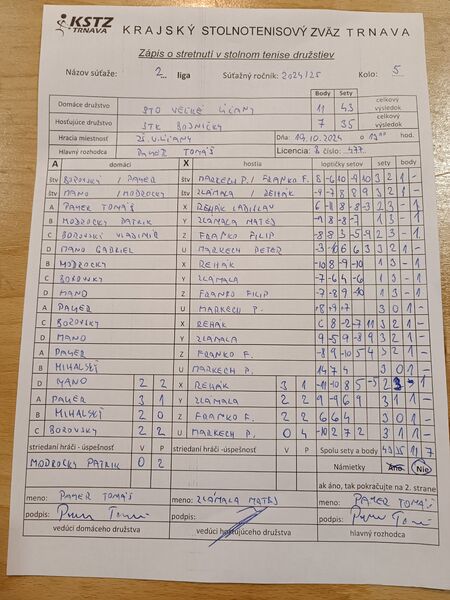 KSTZ
TRNAVA
KRAJSKÝ STOLNOTENISOVÝ ZVÄZ TRNAVA
Zápis o stretnutí v stolnom tenise družstiev
Názov súťaže: 2. liga Súťažný ročník: 2024/25 Kolo: 5
Body Sety
Domáce družstvo STO VEĽKÉ ÚĽANY 11 43 celkový výsledok
Hosťujúce družstvo STK BOJNIČKY 7 35 celkový výsledok
Hracia miestnosť ZŠ V.ÚĽANY Dňa: 19.10.2024 o hod.
Hlavný rozhodca PAMER TOMÁŠ Licencia B číslo: 477
A domáci X hostia loptičky setov sety body
štv BOROVSKÝ / PAMER štv MARKECH P. / FRANKO F. 8 -6 -10 -9 -10 3 2 1 -
štv MANO / MODROCKY štv ZLÁMALA / REHÁK -9 -7 8 8 9 3 2 1 -
A PAMER TOMÁŠ X REHÁK LADISLAV 6 -8 -8 8 -3 2 3 - 1
B MODROCKY PATRIK Y ZLAMALA MATEJ -9 8 -8 -7 1 3 - 1
C BOROVSKÝ VLADIMÍR Z FRANKO FILIP -8 8 3 -5 -9 2 3 - 1
D MANO GABRIEL U MARKECH PETER -3 -10 6 6 3 3 2 1 -
B MODROCKY X REHÁK -10 8 -9 -10 1 3 - 1
C BOROVSKY Y ZLAMALA -7 -6 4 -6 1 3 - 1
D MANO Z FRANKO FILIP -7 -8 9 -10 1 3 - 1
A PAMER U MARKECH P. 3 0 1 -
C BOROVSKY X REHÁK 8 -2 -7 11 3 2 1 -
D MANO Y ZLÁMALA 9 -5 9 -8 3 1 1 -
A PAMER Z FRANKO F. -8 9 -10 5 4 3 2 1 -
B MIHALSKÝ U MARKECH P. 14 7 4 3 0 1 -
D MANO 2 2 X REHÁK 3 1 -11 -10 8 5 -5 2 3 - 1
A PAMER 3 1 Y ZLÁMALA 2 2 9 -9 6 9 3 1 1 -
B MIHALSKÝ 2 0 Z FRANKO F. 2 2 6 6 4 3 0 1 -
C BOROVSKY 2 2 U MARKECH P. 0 4 -10 2 7 2 3 1 1 -
striedaní hráči - úspešnosť V P striedaní hráči - úspešnosť V P Spolu sety a body 43 35 11 7
MODROCKY PATRIK 0 2 Námietky Áno Nie
ak áno, tak pokračujte na 2. strane
meno: PAMER TOMÁŠ meno: ZLAMALA MATEJ meno: PAMER TOMÁŠ
podpis: podpis: podpis:
vedúci domáceho družstva vedúci hosťujúceho družstva hlavný rozhodca